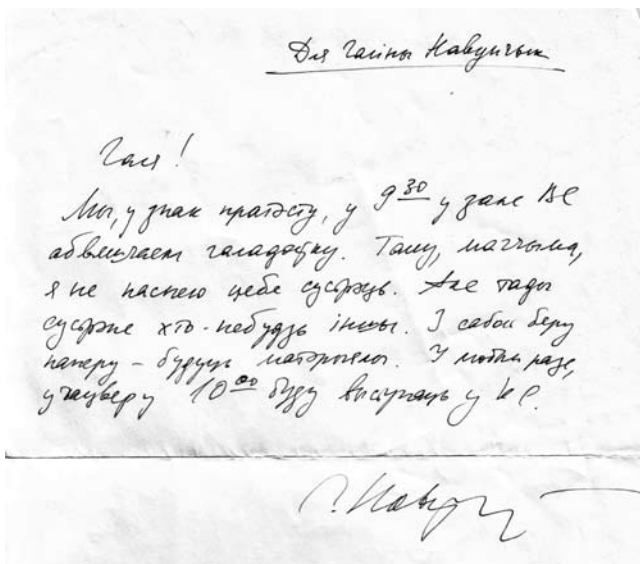 Для Галіны Навумчык
Галя!
Мы, у знак пратэсту, у 9 30 у зале ВС
абвяшчаем галадоўку. Таму, магчыма,
я не паспею цябе сустрэць. Але тады
сустрэне хто-небудзь іншы. З сабой бяру
паперу – будуць матэрыялы. У любым разе,
у чацвер у 10 00 буду выступаць у КС.